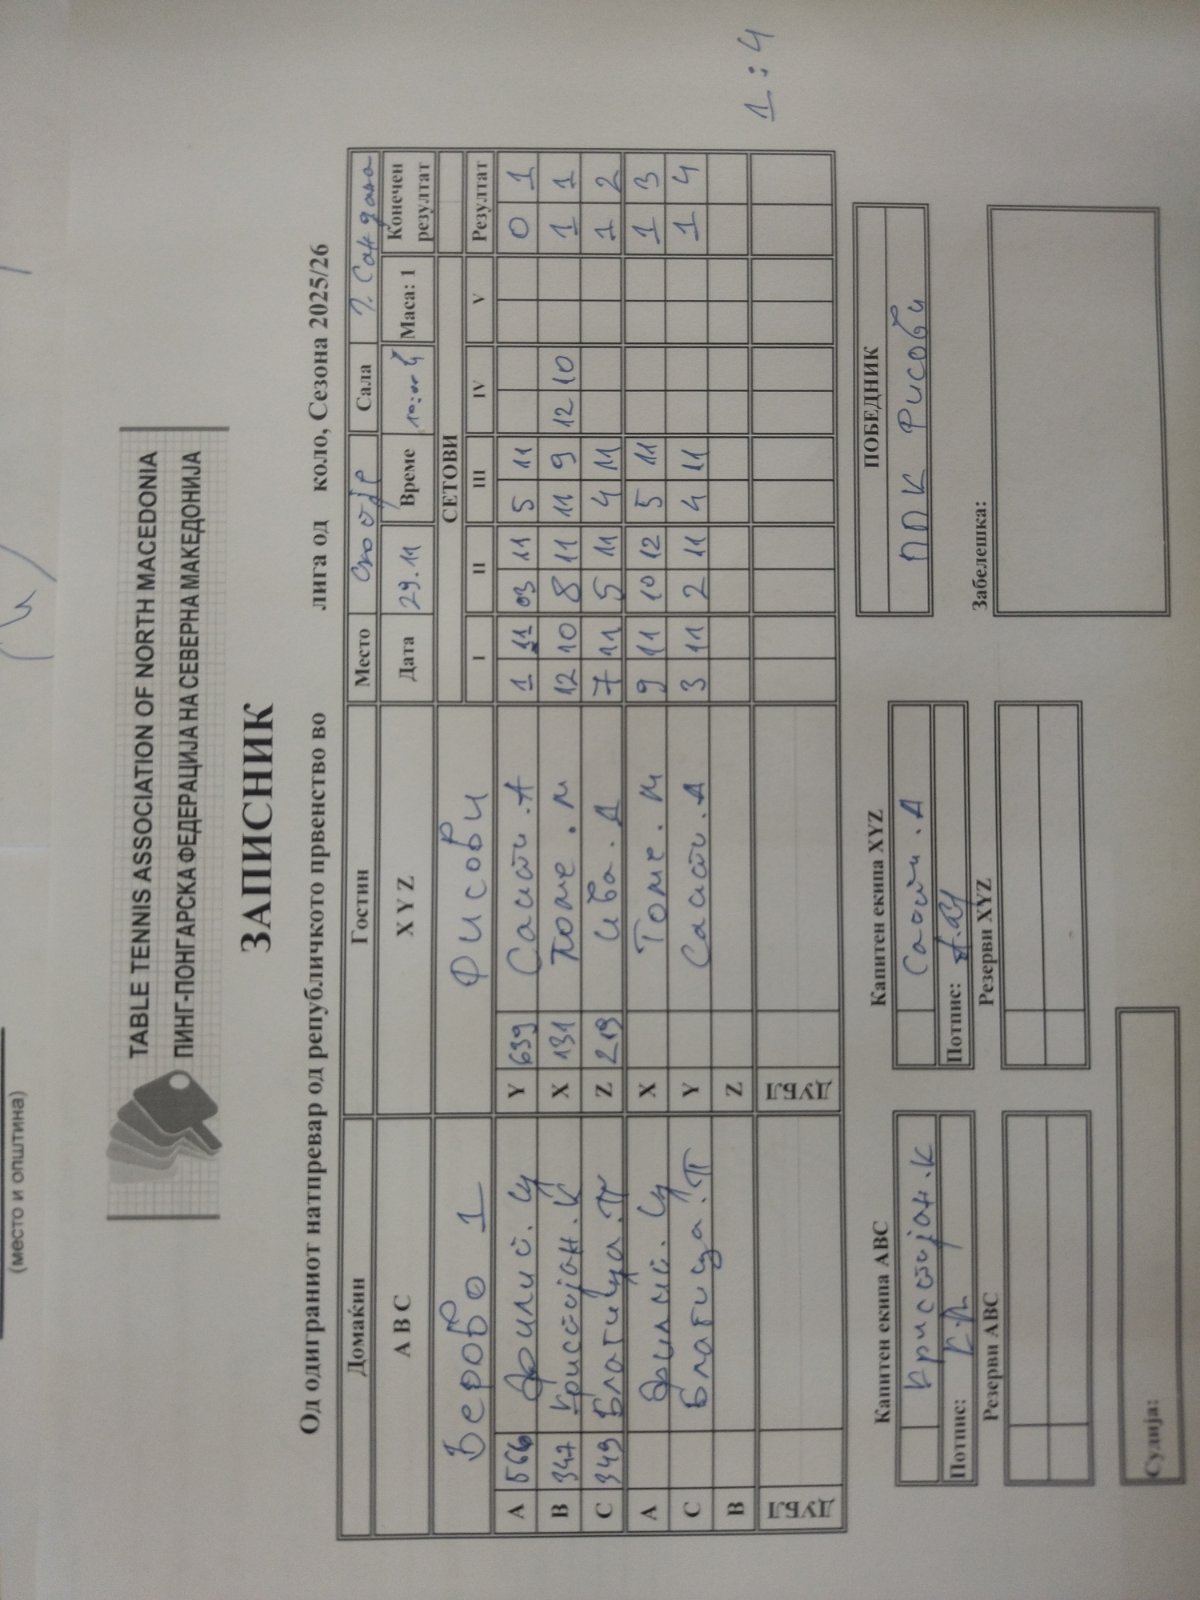 (место и општина)
TABLE TENNIS ASSOCIATION OF NORTH MACEDONIA
ПИНГ-ПОНГАРСКА ФЕДЕРАЦИЈА НА СЕВЕРНА МАКЕДОНИЈА
ЗАПИСНИК
Од одиграниот натпревар од републичкото првенство во лига од коло, Сезона 2025/26
Домаќин Гостин Место Скопје Сала
A B C X Y Z Дата 29.11 Време Маса: 1 Конечен резултат
Берово 1 Рисови СЕТОВИ
I II III IV V Резултат
A 566 Y 639 1 11 03 11 5 11 0 1
B 347 Кристијан.К X 131 Томе.М 12 10 8 11 11 9 12 10 1 1
C 349 Благица.П Z 219 Ива.Д 7 11 5 11 4 11 1 2
A X Томе.М 9 11 10 12 5 11 1 3
C Благица.П Y 3 11 2 11 4 11 1 4
B Z
ДУБЛ ДУБЛ
1:4
Капитен екипа ABC Капитен екипа XYZ ПОБЕДНИК
Кристијан.К ППК Рисови
Потпис: Потпис:
Резерви ABC Резерви XYZ Забелешка:
Судија: